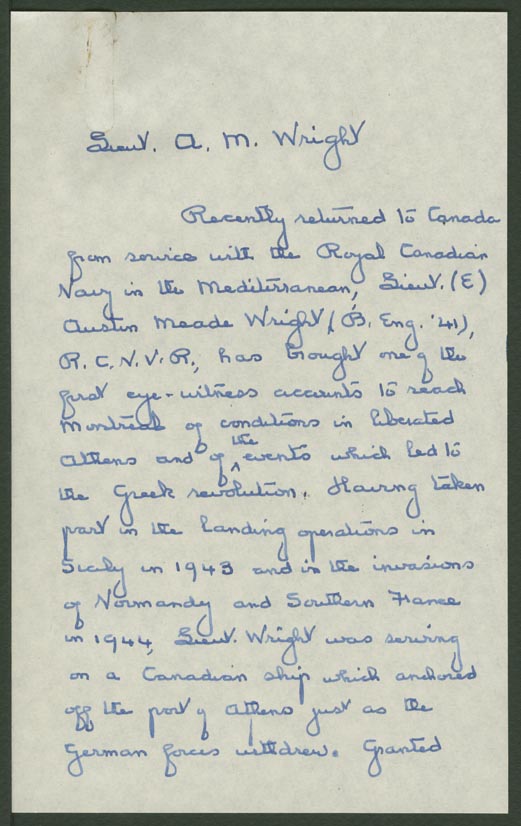 Lieut. A. M. Wright
Recently returned to Canada
from service with the Royal Canadian
Navy in the Mediterranean, Lieut. (E)
Austin Meade Wright, (B. Eng. '41),
R.C.N.V.R., has brought one of the
first eye-witness accounts to reach
Montreal of conditions in liberated
Athens and of the events which led to
the Greek revolution. Having taken
part in the landing operations in
Sicily in 1943 and in the invasions
of Normandy and Southern France
in 1944, Lieut. Wright was serving
on a Canadian ship which anchored
off the port of Athens just as the
German forces withdrew. Granted